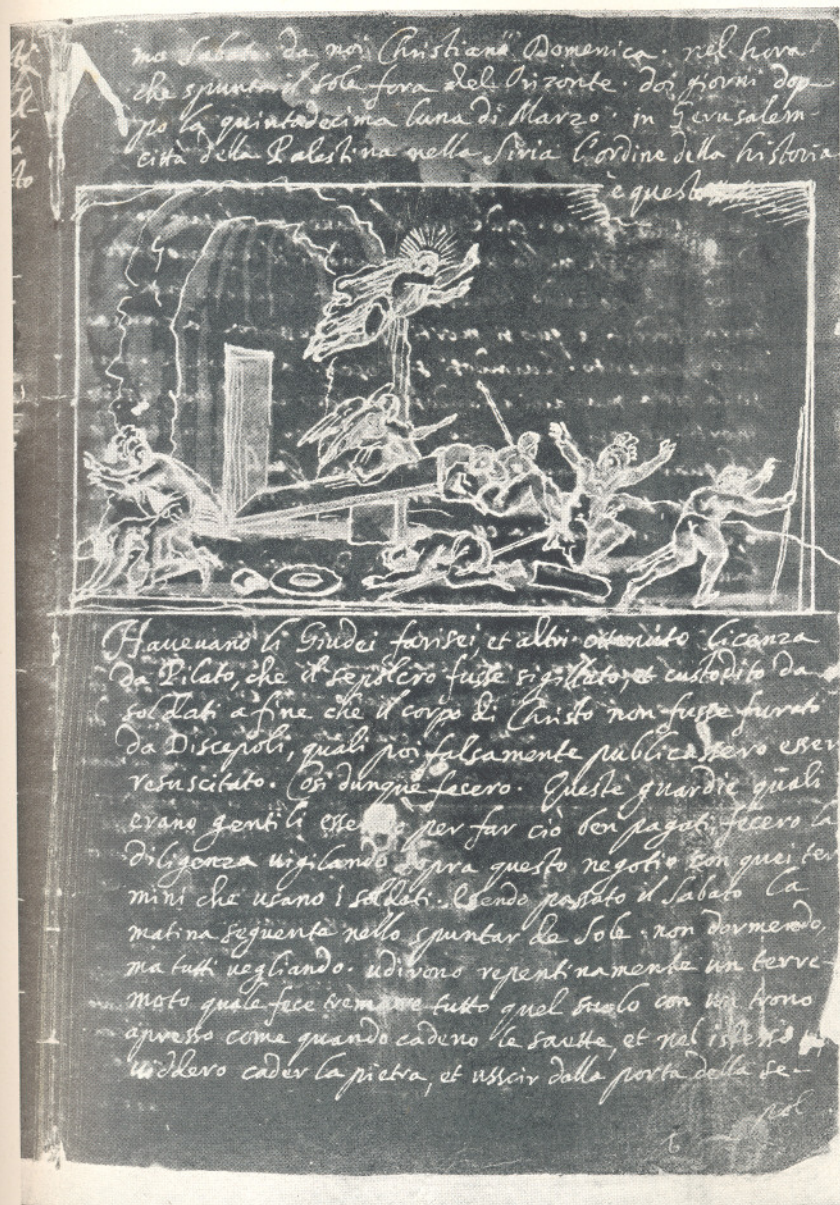 ma Sabato da noi Christiana Domenica. nel hora
che spunta il sole fora del Orizonte. doi giorni dop-
po la quintadecima luna di Marzo. in Gerusalem-
città della Palestina nella Siria l'ordine della historia
è questo
Havevano li Giudei farisei, et altri ottenuto licenza
da Pilato, che il sepolcro fusse sigillato, et custodito da
soldati a fine che il corpo di Christo non fusse furato
da Discepoli, quali poi falsamente publicassero esser
resuscitato. Cosi dunque fecero. Queste guardie quali
erano gentili per far ciò ben pagati, fecero la
diligenza vigilando sopra questo negotio con quei ter
mini che usano i soldati. Essendo passato il Sabato la
matina seguente nello spuntar de Sole. non dormendo,
ma tutti vegliando. udirono repentinamente un terre-
moto quale fece tremare tutto quel suolo con un trono
apresso come quando cadeno le saette, et nel istesso
viddero cader la pietra, et usscir dalla porta della se-
pol